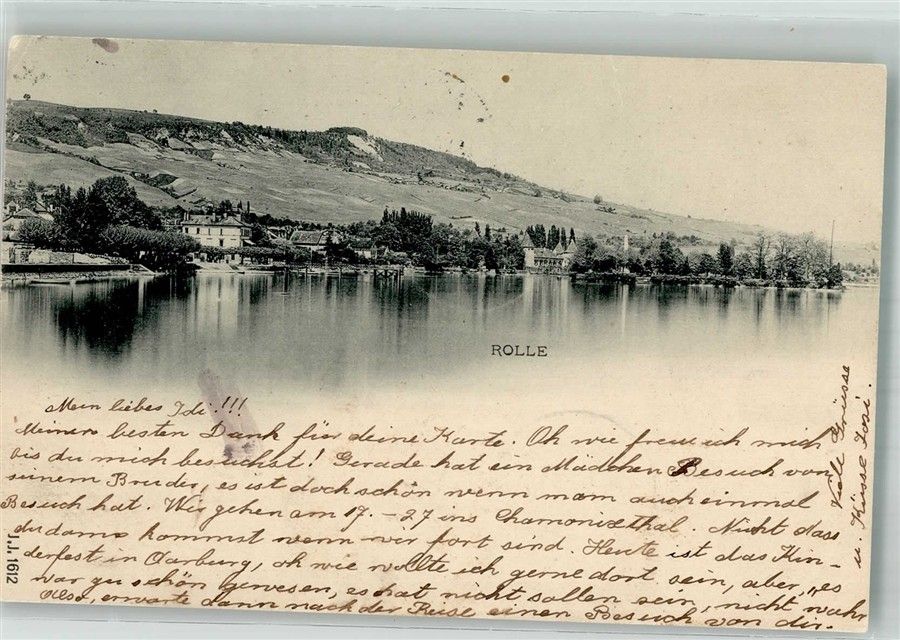 ROLLE
Mein liebes Idi!!!
Meinen besten Dank für deine Karte. Oh wie freu ich mich
bis du mich besuchst! Gerade hat ein Mädchen Besuch von
seinem Bruder, es ist doch schön wenn mam auch einmal
Besuch hat. Wir gehen am 17. – 27 ins Chamonixthal. Nicht dass
du dann kommst wenn wir fort sind. Heute ist das Kin-
derfest in Aarburg, oh wie wollte ich gerne dort sein, aber, "es
war zu schön gewesen, es hat nicht sollen sein, nicht wahr
Also, erwarte dann nach der Reise einen Besuch von dir.
Viele Grüsse
u. Küsse Rosi.
J.J. 1612